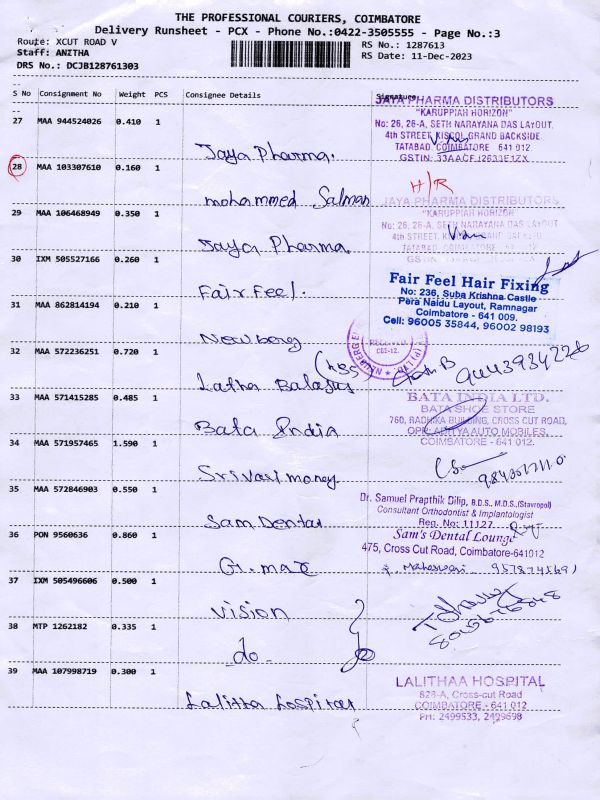 THE PROFESSIONAL COURIERS, COIMBATORE
Delivery Runsheet - PCX - Phone No.:0422-3505555 - Page No.:3
Route: XCUT ROAD V
Staff: ANITHA
DRS No.: DCJB128761303
RS No.: 1287613
RS Date: 11-Dec-2023
S No Consignment No Weight PCS Consignee Details Signature
27 MAA 944524026 0.410 1
Jaya Pharma.
JAYA PHARMA DISTRIBUTORS
"KARUPPIAH HORIZON"
No: 26, 26-A, SETH NARAYANA DAS LAYOUT,
4th STREET, KISCOL GRAND BACKSIDE,
TATABAD, COIMBATORE 641 012
GSTIN: 33AACFJ2633E1ZX
28 MAA 103307610 0.160 1
mohammed Salman
H/R
29 MAA 106468949 0.350 1
Jaya Pharma
JAYA PHARMA DISTRIBUTORS
"KARUPPIAH HORIZON"
No: 26, 26-A, SETH NARAYANA DAS LAYOUT
4th STREET,
TATABAD, COIMBATORE 641 012
30 IXM 505527166 0.260 1
Fair Feel.
Fair Feel Hair Fixing
No: 236, Suba Krishna Castle
Pera Naidu Layout, Ramnagar
Coimbatore - 641 009.
Cell: 96005 35844, 96002 98193
31 MAA 862814194 0.210 1
Newberg
32 MAA 572236251 0.720 1
Latha
33 MAA 571415285 0.485 1
Bata India
BATA INDIA LTD.
BATA SHOE STORE
760, RADHIKA BUILDING, CROSS CUT ROAD,
OPP. ADITYA AUTO MOBILES,
COIMBATORE - 641 012.
34 MAA 571957465 1.590 1
Srivari money
35 MAA 572846903 0.550 1
Sam Dental
Dr. Samuel Prapthik Dilip, B.D.S., M.D.S.,(Stavropol)
Consultant Orthodontist & Implantologist
Reg. No: 11127
Sam's Dental Lounge
475, Cross Cut Road, Coimbatore-641012
36 PON 9560636 0.860 1
37 IXM 505496606 0.500 1
Vision
38 MTP 1262182 0.335 1
-do-
39 MAA 107998719 0.300 1
Lalitha hospital
LALITHAA HOSPITAL
828-A, Cross-cut Road
COIMBATORE - 641 012
PH: 2499533, 2499698